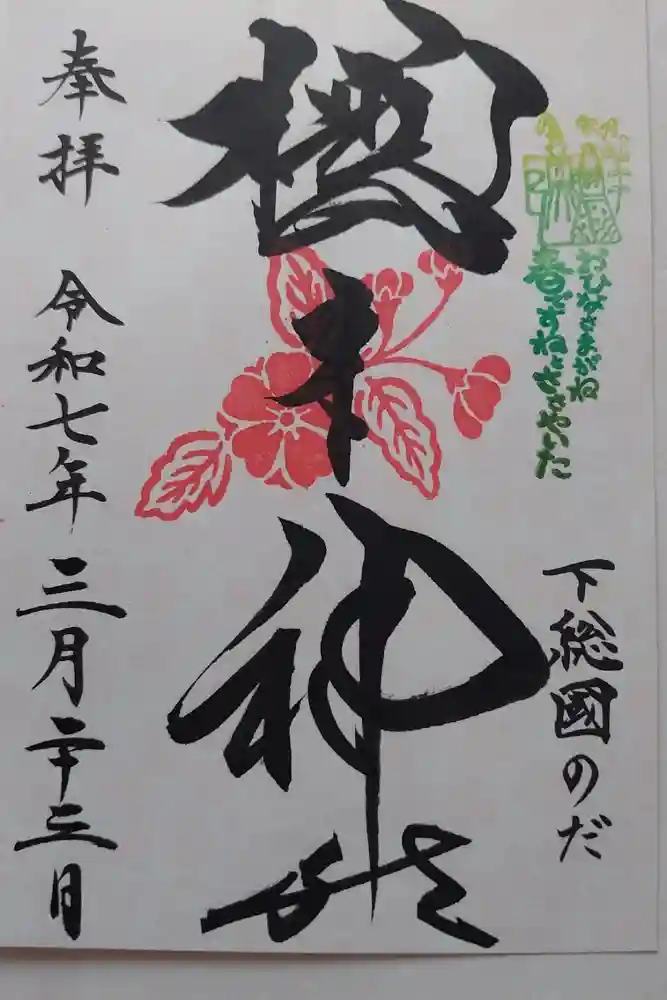 おひなさまがね
春ですねとささやいた
下総國のだ
櫻木神社
奉拝 令和七年三月二十三日